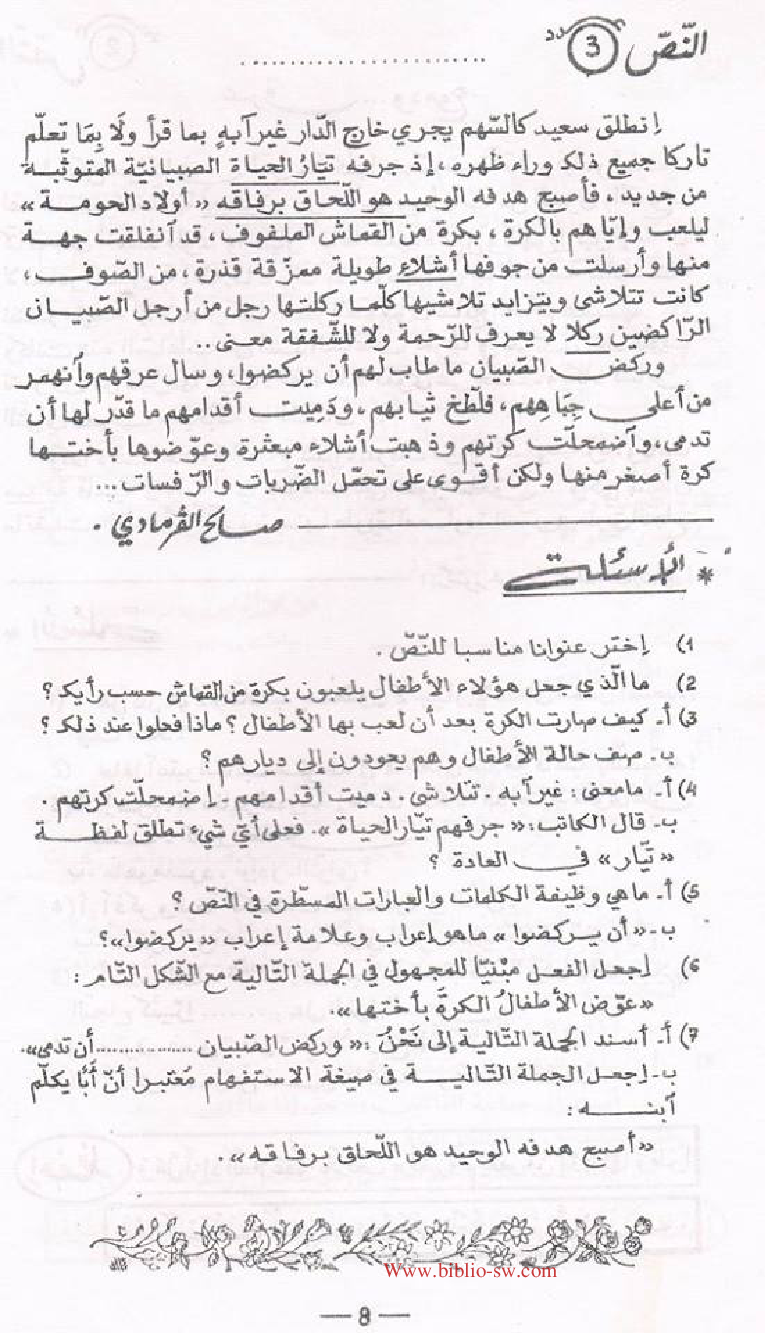 النّصّ 3
....................................
إنطلق سعيد كالسّهم يجري خارج الدّار غير آبهٍ بما قرأ ولَا بِمَا تعلّم
تاركا جميع ذلك وراء ظهره، إذ جرفه تيّارُ الحياة الصبيانيّة المتوثّبة
من جديد، فأصبح هدفه الوحيد هو اللّحاق برفاقه «أولاد الحومة»
ليلعب وإيّاهم بالكرة، بكرة من القماش الملفوف، قد آنفلقت جهة
منها وأرسلت من جوفها أشلاء طويلة ممزّقة قذرة، من الصّوف،
كانت تتلاشى ويتزايد تلاشيها كلّما ركلتها رجل من أرجل الصّبيان
الرّاكضين ركلا لا يعرف للرّحمة ولا للشّفقة معنى..
وركض الصّبيان ما طاب لهم أن يركضوا، وسال عرقهم وآنهمر
من أعلى جِبَاهِهم، فلطّخ ثيابهم، ودَمِيت أقدامهم ما قدّر لها أن
تدمى، وآضمحلّت كرتهم وذهبت أشلاء مبعثرة وعوّضوها بأختها
كرة أصغر منها ولكن أقوى على تحمّل الضّربات والرّفسات...
صالح القرمادي .
* الأسئلة
1) إختر عنوانا مناسبا للنّصّ .
2) ما الّذي جعل هؤلاء الأطفال يلعبون بكرة من القماش حسب رأيك ؟
3) أ- كيف صارت الكرة بعد أن لعب بها الأطفال ؟ ماذا فعلوا عند ذلك ؟
ب- صف حالة الأطفال وهم يعودون إلى ديارهم ؟
4) أ- مامعنى : غير آبه . تتلاشى . دميت أقدامهم . إضمحلت كرتهم .
ب- قال الكاتب : «جرفهم تيّار الحياة». فعلى أيّ شيء تطلق لفظة
«تيّار» في العادة ؟
5) أ- ماهي وظيفة الكلمات والعبارات المسطّرة في النّصّ ؟
ب- «أن يركضوا» ماهو إعراب وعلامة إعراب «يركضوا»؟
6) إجعل الفعل مبْنيّا للمجهول في الجملة التّالية مع الشّكل التّام :
«عوّض الأطفالُ الكرةَ بأختها».
7) أ- أسند الجملة التّالية إلى نَحْنُ : «وركض الصّبيان ................ أن تدمى».
ب- إجعل الجملة التّالية في صيغة الاستفهام مُعتبرا أنّ أبًا يكلّم
آبنه :
«أصبح هدفه الوحيد هو اللّحاق برفاقه».
www.biblio-sw.com
— 8 —